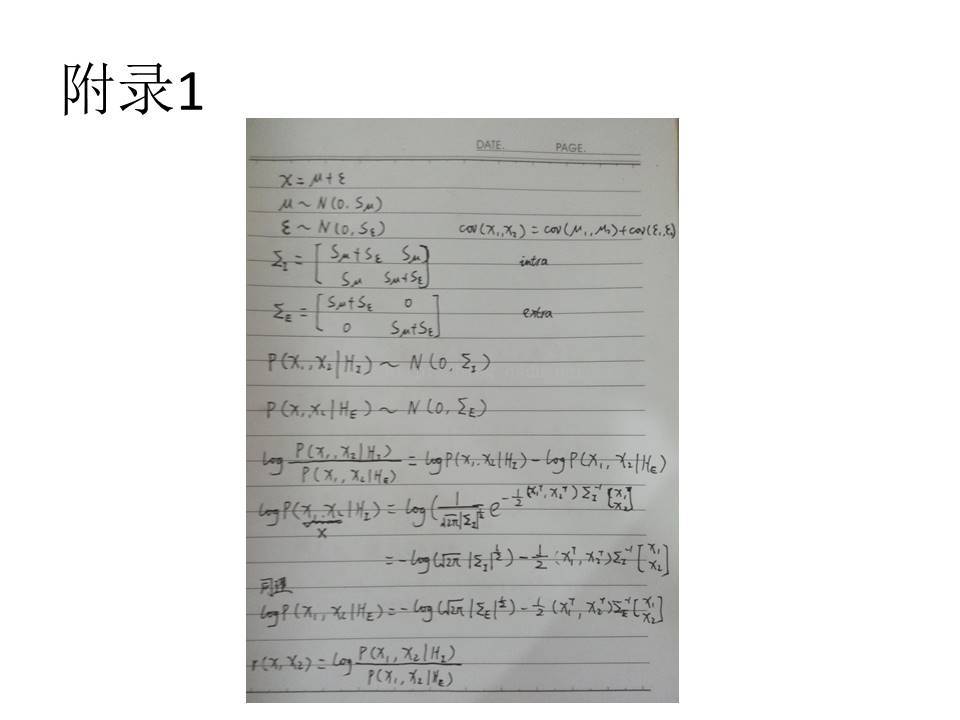 附录1
DATE. PAGE.
x = μ + ε
μ ~ N(0, Sμ)
ε ~ N(0, Sε) cov(x₁, x₂) = cov(μ₁, μ₂) + cov(ε₁, ε₂)
Σ_I = [ Sμ+Sε Sμ
Sμ Sμ+Sε ] intra
Σ_E = [ Sμ+Sε 0
0 Sμ+Sε ] extra
P(x₁, x₂ | H_I) ~ N(0, Σ_I)
P(x₁, x₂ | H_E) ~ N(0, Σ_E)
log P(x₁, x₂ | H_I) / P(x₁, x₂ | H_E) = log P(x₁, x₂ | H_I) − log P(x₁, x₂ | H_E)
log P(x₁, x₂ | H_I) = log( 1 / √2π |Σ_I|^½ e^−½ (x₁ᵀ, x₂ᵀ) Σ_I⁻¹ [x₁ x₂]
x
= −log(√2π |Σ_I|^½) − ½ (x₁ᵀ, x₂ᵀ) Σ_I⁻¹ [x₁ x₂]
同理
log P(x₁, x₂ | H_E) = −log(√2π |Σ_E|^½) − ½ (x₁ᵀ, x₂ᵀ) Σ_E⁻¹ [x₁ x₂]
r(x₁, x₂) = log P(x₁, x₂ | H_I) / P(x₁, x₂ | H_E)